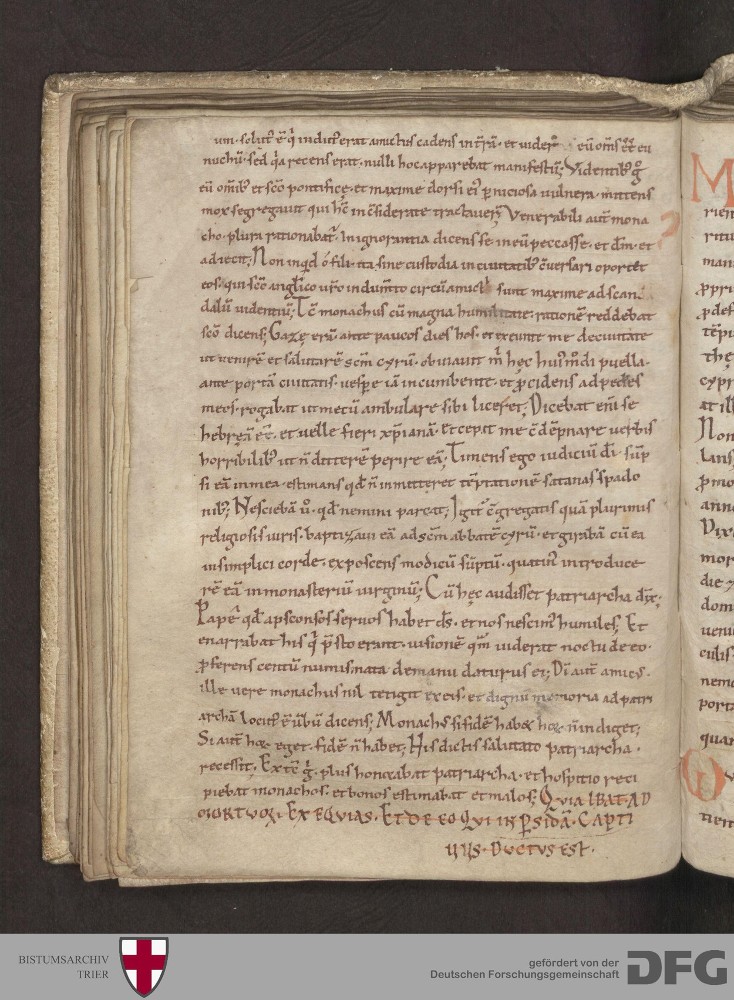 um · soluit᷑ ē q̇ indict᷑ erat amictus cadens in t᷑rā · et uider eū om̄s eē eu
nuchū · sed q̇a recens erat · nulli hoc apparebat manifestū; Videntibꝰ g̊
eū om̄ibꝰ et sc̄o pontifice, et maxime dorsi eiꝰ ꝑniciosa uulnera · mittens
mox segregauit qui hē incsiderate tractauer̄; Venerabili aut̄ mona
cho · plura rationabat᷑ · In ignorantia dicens se in eū peccasse · et dm̄ · et
adiecit; Non inquid ó fili · ita sine custodia in ciuitatibꝰ c̄uersari oportet
eos · qui sc̄o anglico ur̄o indum̄to circūamicti sunt maxime ad scan
dalū uidentiū; Tc̄ monachus cū magna humilitate · rationē reddebat
sc̄o dicens; Gazę erā · ante paucos dies hos · et exeunte me de ciuitate
ut uenirē et salutarē sc̄m cyrū · obuiauit m̄ hęc huiꝰm̊di puella ·
ante portā ciuitatis · uespe iā incumbente · et ꝑcidens ad pedes
meos · rogabat ut mecū ambulare sibi liceret; Dicebat eni se
hebręā eē · et uelle fieri xp̄ianā · Et cepit me c̄dēpnare uerbis
horribilibꝰ ut n̄ ditterē perire eā; Timens ego iudiciū di · sūp
si eā in mea · estimans qd̄ n̄ inmitteret tēptationē satanas spado
nibꝰ; Nesciebā u̓ · qd̄ nemini parcat; Igit᷑ c̄gregatis quā plurimis
religiosis uiris · baptizaui eā ad sc̄m abbatē cyrū · et girabā cū ea
in simplici corde · exposcens modicū sūptū · quatinꝰ introduce
rē eā in monasteriū uirginū; Cū hęc audisset patriarcha dix̄;
Papę̄ qd̄ apsconsos seruos habet ds̄ · et nos nescimꝰ humiles; Et
enarrabat his q̇ p̄sto erant · uisionē qm̄ uiderat noctu de eo ·
ꝓferens centū numismata de manu daturus ei; Di aut̄ amicꝰ ·
ille uere monachus nil tetigit ex eis · et dignū memoria ad patri
archā locutꝰ ē úbū dicens; Monachꝰ si fidē habet hoc n̄ indiget;
Si aut̄ hoc eget · fidē n̄ habet; His dictis salutato patriarcha ·
recessit · Ext̄ g̊ · plus honorabat patriarcha · et hospitio reci
piebat monachos · et bonos estimabat et malos; QVIA IBAT AD
MORTVOꝜ · EXEQVIAS · ET DE EO QVI IN PSIDĀ · CAPTI
UUS · DUCTVS EST ·
M
rien
ritu
man
ꝓpri
ꝓdef
tēpu
thę
cypr
at ill
Non
lans
ꝓmo
anno
Dix
mor
die
dom
ueni
cubis
nemo
porta
quar
BISTUMSARCHIV
TRIER
gefördert von der
Deutschen Forschungsgemeinschaft
DFG